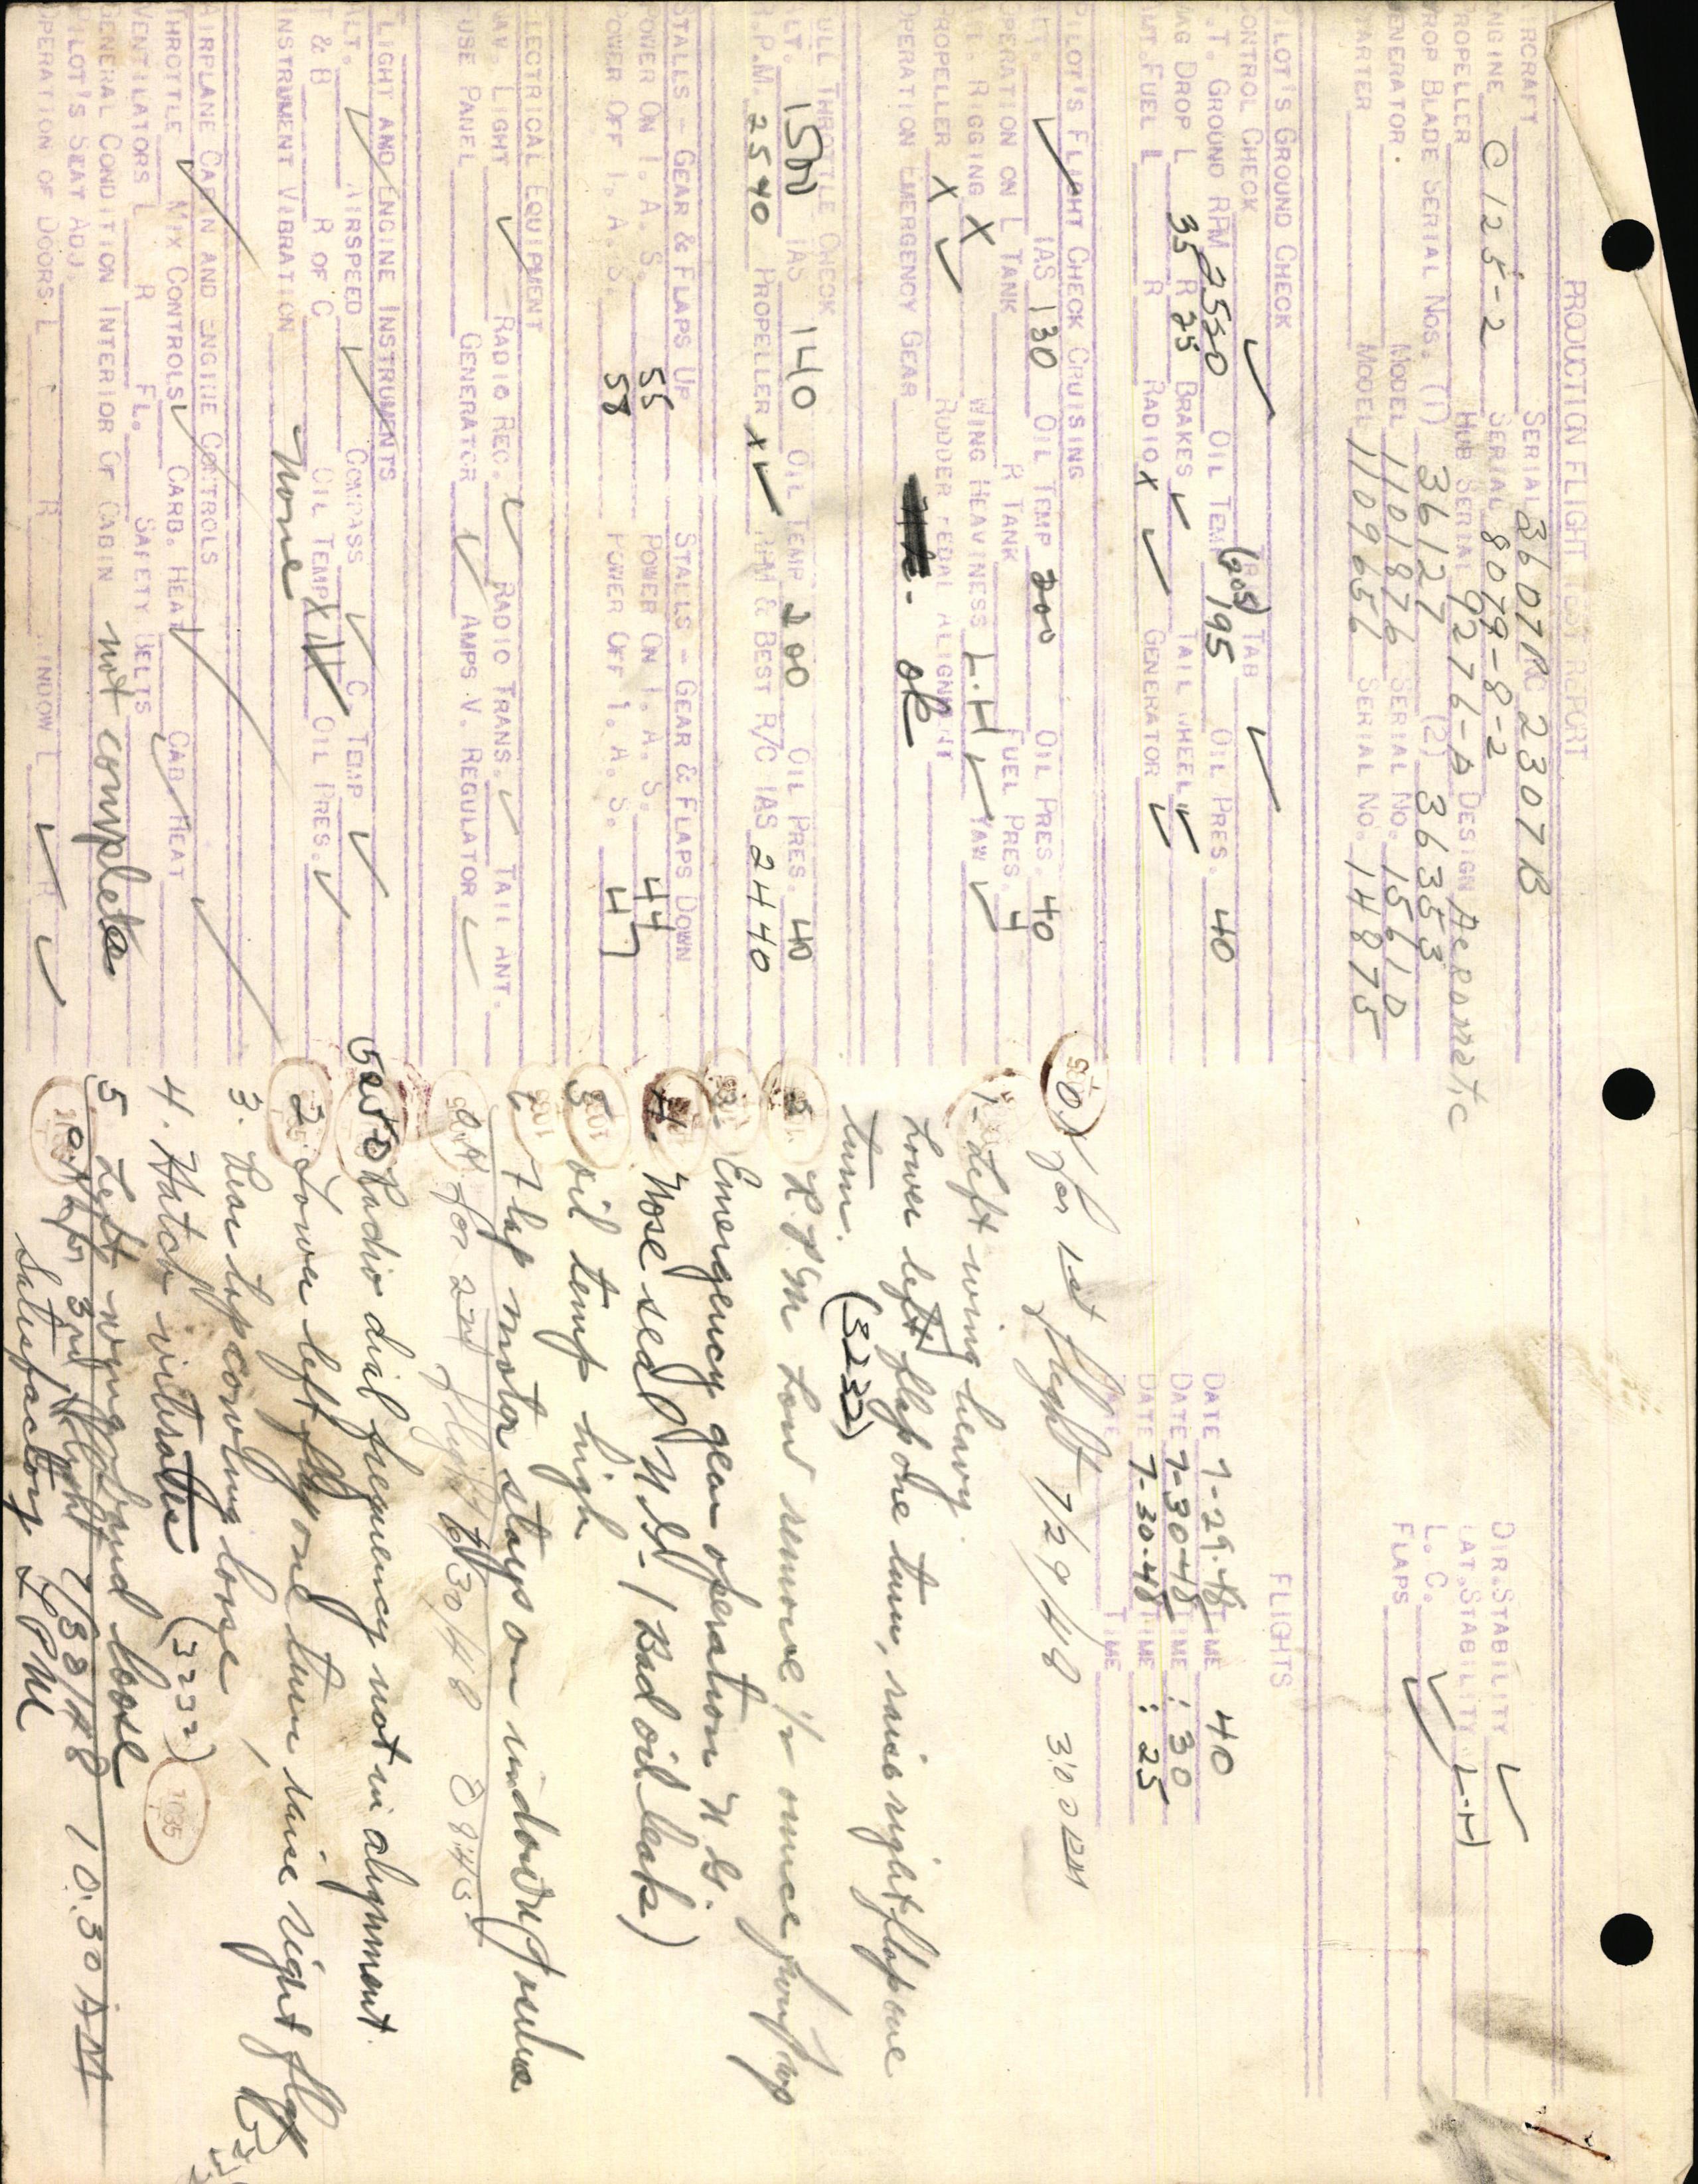 PRODUCTION FLIGHT TEST REPORT
AIRCRAFT SERIAL 3607 RC 2307B DIR. STABILITY ✓
ENGINE C125-2 SERIAL 8079-8-2 LAT. STABILITY L-H
PROPELLER HUB SERIAL 9276-A DESIGN Aeromatic L. C. ✓
PROP BLADE SERIAL NOS. (1) 36127 (2) 36353 FLAPS ✓
GENERATOR. MODEL 1101876 SERIAL NO. 1561D
STARTER MODEL 1109656 SERIAL NO. 14875
PILOT'S GROUND CHECK FLIGHTS
CONTROL CHECK ✓ TAB ✓
F.T. GROUND RPM 2550 OIL TEMP (205) 195 OIL PRES. 40 DATE 7-29-48 TIME 40
MAG DROP L 35 R 25 BRAKES ✓ TAIL WHEEL ✓ DATE 7-30-48 TIME : 30
FUEL L R RADIO X ✓ GENERATOR ✓ DATE 7-30-48 TIME : 25
TIME
PILOT'S FLIGHT CHECK CRUISING
✓ IAS 130 OIL TEMP 200 OIL PRES. 40
OPERATION ON L TANK R TANK FUEL PRES. 4
RIGGING X WING HEAVINESS L.H ✓ YAW ✓
PROPELLER X ✓ RUDDER PEDAL ALIGNMENT
OPERATION EMERGENCY GEAR ok
FULL THROTTLE CHECK
ALT. 1500 IAS 140 OIL TEMP 200 OIL PRES. 40
R.P.M. 2540 PROPELLER X ✓ RPM & BEST R/C IAS 2440
STALLS - GEAR & FLAPS UP STALLS - GEAR & FLAPS DOWN
POWER ON I. A. S. 55 POWER ON I. A. S. 44
POWER OFF I. A. S. 58 POWER OFF I. A. S. 47
ELECTRICAL EQUIPMENT
NAV. LIGHT ✓ RADIO REC. ✓ RADIO TRANS. ✓ TAIL ANT.
FUSE PANEL GENERATOR ✓ AMPS V. REGULATOR ✓
FLIGHT AND ENGINE INSTRUMENTS
ALT. ✓ AIRSPEED ✓ COMPASS ✓ C. TEMP ✓
T & B R OF C OIL TEMP X OIL PRES. ✓
INSTRUMENT VIBRATION None
AIRPLANE CABIN AND ENGINE CONTROLS
THROTTLE ✓ MIX CONTROLS ✓ CARB. HEAT ✓ CAB HEAT
VENTILATORS L R FL. SAFETY BELTS
GENERAL CONDITION INTERIOR OF CABIN not complete
PILOT'S SEAT ADJ.
OPERATION OF DOORS L R WINDOW L ✓ R ✓
O.K for 1st flight 7/29/48 3:00 PM
1- Left wing heavy.
Lower left flap one turn, raise right flap one
turn. (3232)
2 R.P.M Low remove 1/2 ounce from prop
3. Emergency gear operation N.G.
4. Nose seal N.G. - (Bad oil leak)
5 Oil temp high
6 Flap motor stays on
O.K. for 2nd flight 7/30/48
Radio dial frequency not in alignment.
2. Lower left flap one turn, raise right flap
3. Rear top cowling loose
4. Hatch vibrates (3232)
5. Left wing band loose
O.K for 3rd flight 7/30/48 10:30 AM
Satisfactory